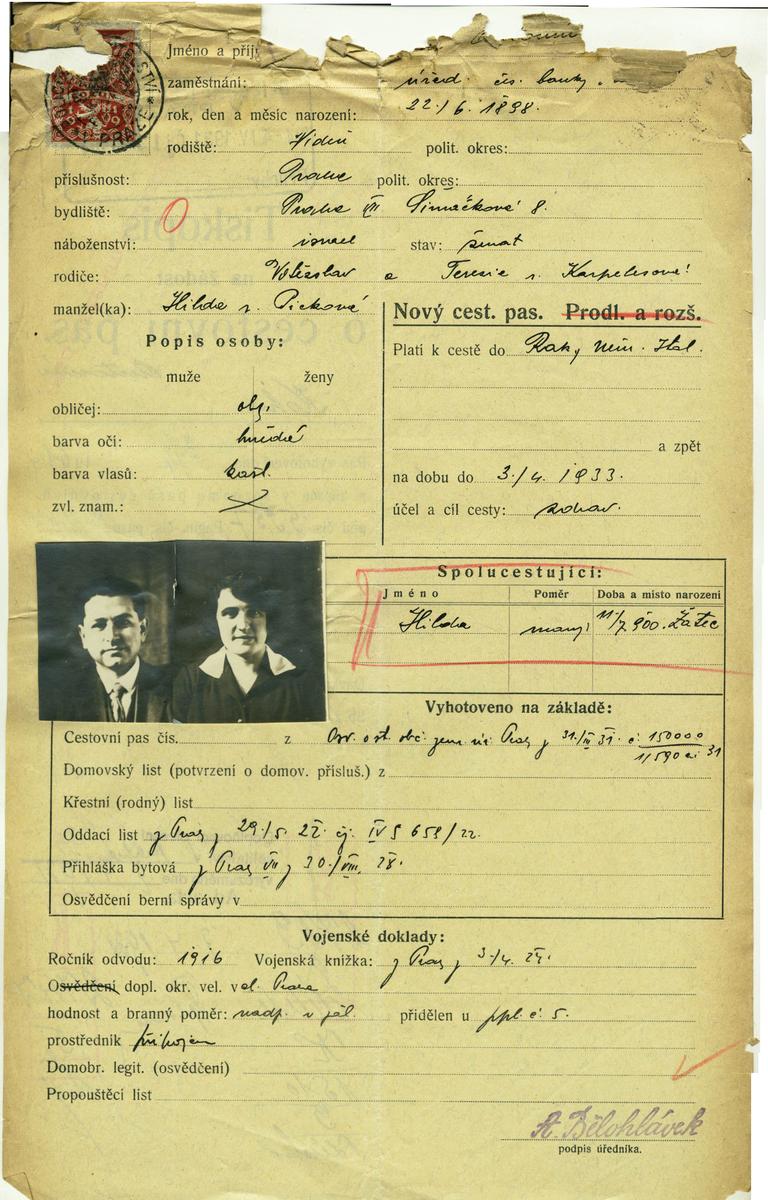 Jméno a příj
zaměstnání: úřed. čs. banky
rok, den a měsíc narození: 22./6. 1898.
rodiště: Vídeň polit. okres:
příslušnost: Praha polit. okres:
bydliště: Praha VII Šimáčkova 8.
náboženství: israel stav: ženat
rodiče: Vítězslav a Teresie r. Karpelesová
manžel(ka): Hilda r. Picková
Nový cest. pas. Prodl. a rozš.
Popis osoby:
Platí k cestě do Rak, Něm. Ital.
muže ženy
obličej: obl.
barva očí: hnědé
a zpět
barva vlasů: kašt.
na dobu do 3./4. 1933.
zvl. znam.:
účel a cíl cesty: zdrav.
Spolucestující:
Jméno Poměr Doba a místo narození
Hilda manž. 11/7 900. Žatec
Vyhotoveno na základě:
Cestovní pas čís. z Osv. o st. obč. zem. úř. Praz z 31./III 31. č. 150000
11/590 ai 31
Domovský list (potvrzení o domov. přísluš.) z
Křestní (rodný) list
Oddací list z Prahy z 29./5. 22. čj. IV 659/22.
Přihláška bytová z Prahy VII z 30./VIII. 28.
Osvědčení berní správy v
Vojenské doklady:
Ročník odvodu: 1916 Vojenská knížka: z Prahy z 3./4. 24.
Osvědčení dopl. okr. vel. vel. Praha
hodnost a branný poměr: nadp. v zál. přidělen u ppl. č. 5.
prostředník
Domobr. legit. (osvědčení)
Propouštěcí list
A. Bělohlávek
podpis úředníka.